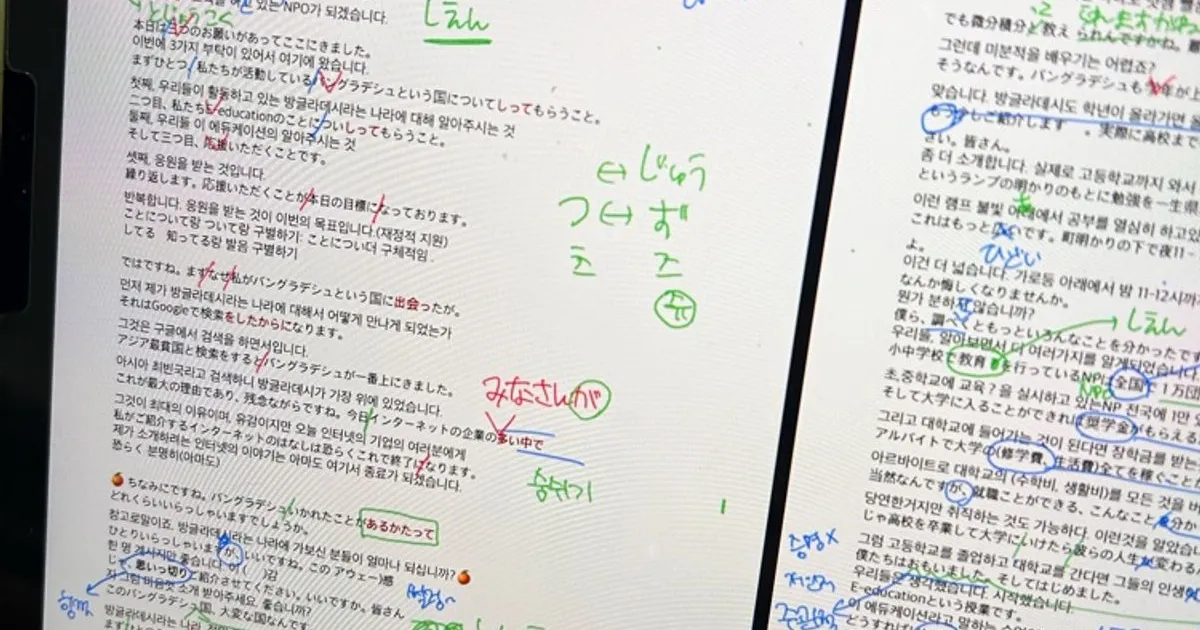 있는 NPO가 되겠습니다.
しえん
本日は3つのお願いがあってここにきました。
이번에 3가지 부탁이 있어서 여기에 왔습니다.
まずひとつ、私たちが活動しているバングラデシュという国についてしってもらうこと。
첫째, 우리들이 활동하고 있는 방글라데시라는 나라에 대해 알아주시는 것
二つ目、私たちE-educationのことについしってもらうこと。
둘째, 우리들 이 에듀케이션의 알아주시는 것
そして三つ目、応援いただくことです。
셋째, 응원을 받는 것입니다.
繰り返します。応援いただくことが本日の目標になっております。
반복합니다. 응원을 받는 것이 이번의 목표입니다.(재정적 지원)
ことについて랑 ついて랑 구별하기: ことについ더 구체적임 .
してる 知ってる랑 발음 구별하기
↔ じゅう
つ ↔ ず
츠 즈
쮸
ではですね。まずなぜ私がバングラデシュという国に出会ったが。
먼저 제가 방글라데시라는 나라에 대해서 어떻게 만나게 되었는가
それはGoogleで検索をしたからになります。
그것은 구글에서 검색을 하면서입니다.
アジア最貧国と検索をするとバングラデシュが一番上にきました。
아시아 최빈국리고 검색하니 방글라데시가 가장 위에 있었습니다.
これが最大の理由であり、残念ながらですね。今日インターネットの企業の多い中で
みなさんが
그것이 최대의 이유이며, 유감이지만 오늘 인터넷의 기업의 여러분에게
私がご紹介するインターネットのはなしは恐らくこれで終了になります。
제가 소개하려는 인터넷의 이야기는 아마도 여기서 종료가 되겠습니다.
恐らく 분명히(아마도)
숨쉬기
ちなみにですね。バングラデシュいかれたことがあるかたって
どれくらいいらっしゃいますでしょうか。
참고로말이죠. 방글라데시라는 나라에 가보신 분들이 얼마나 되십니까?
ひとりいらっしゃいますが、いいですね。このアウェー感
한 명 계시지만 좋습니다. 이( )감
じゃ、思いっ切りご紹介させてください。いいですか。皆さん
자 그럼 마음껏 소개 받아주세요. 좋습니까?
このバングラデシュ国、大変な国なんです。
방글라데시라는 나라,
でも微分積分と教えられんですかね。
그런데 미분적을 배우기는 어렵죠?
そうなんです。バングラデシュも
맞습니다. 방글라데시도 학년이 올라가면
もう少しご紹介します 。実際に高校まで
さい。皆さん。
좀 더 소개합니다. 실제로 고등학교까지 와서
というランプの明かりのもとに勉強を一生
이런 램프 불빛 아래에서 공부를 열심히 하고
これはもっと ひどいです。町明かりの下で夜11-
よ。
이건 더 넓습니다. 가로등 아래에서 밤 11-12시까
なんか悔しくなりませんか。
뭔가 분하지 않습니까?
僕ら、調べてくともっといろんなことを分かったです
우리들, 알아보면서 더 여러가지를 알게되었습니다
しえん
小中学校で教育を行っているNPは全国 1万団
NPO
초중학교에 교육?을 실시하고 있는NP 전국에 1만
そして大学に入ることができれば奨学金がもらえる
그리고 대학교에 들어가는 것이 된다면 장학금을 받는
アルバイトで大学の(修学費、生活費)全てを稼ぐこと
아르바이트로 대학교의 (수학비, 생활비)를 모든 것을
当然なんですが、就職ことができる、こんなこと
당연한거지만 취직하는 것도 가능하다. 이런것을 알았습니
じゃ高校を卒業して大学にいけたら彼らの人生が変わる
그럼 고등학교를 졸업하고 대학교를 간다면 그들의 인생
僕たちはおもいました。そしてはじめました。
우리들은 생각했습니다. 시작했습니다.
E-educationという授業です。
이 에듀케이션라고 말하는
증명X